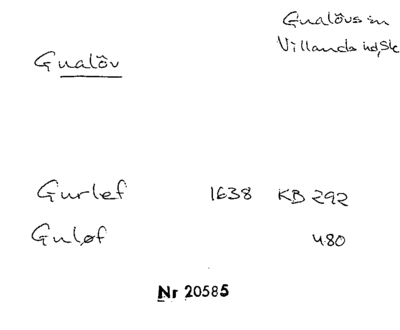 Gualöv
Gualövs sn
Villands hd, Sk
Gurlef 1638 KB 292
Guløf 480
Nr 20585